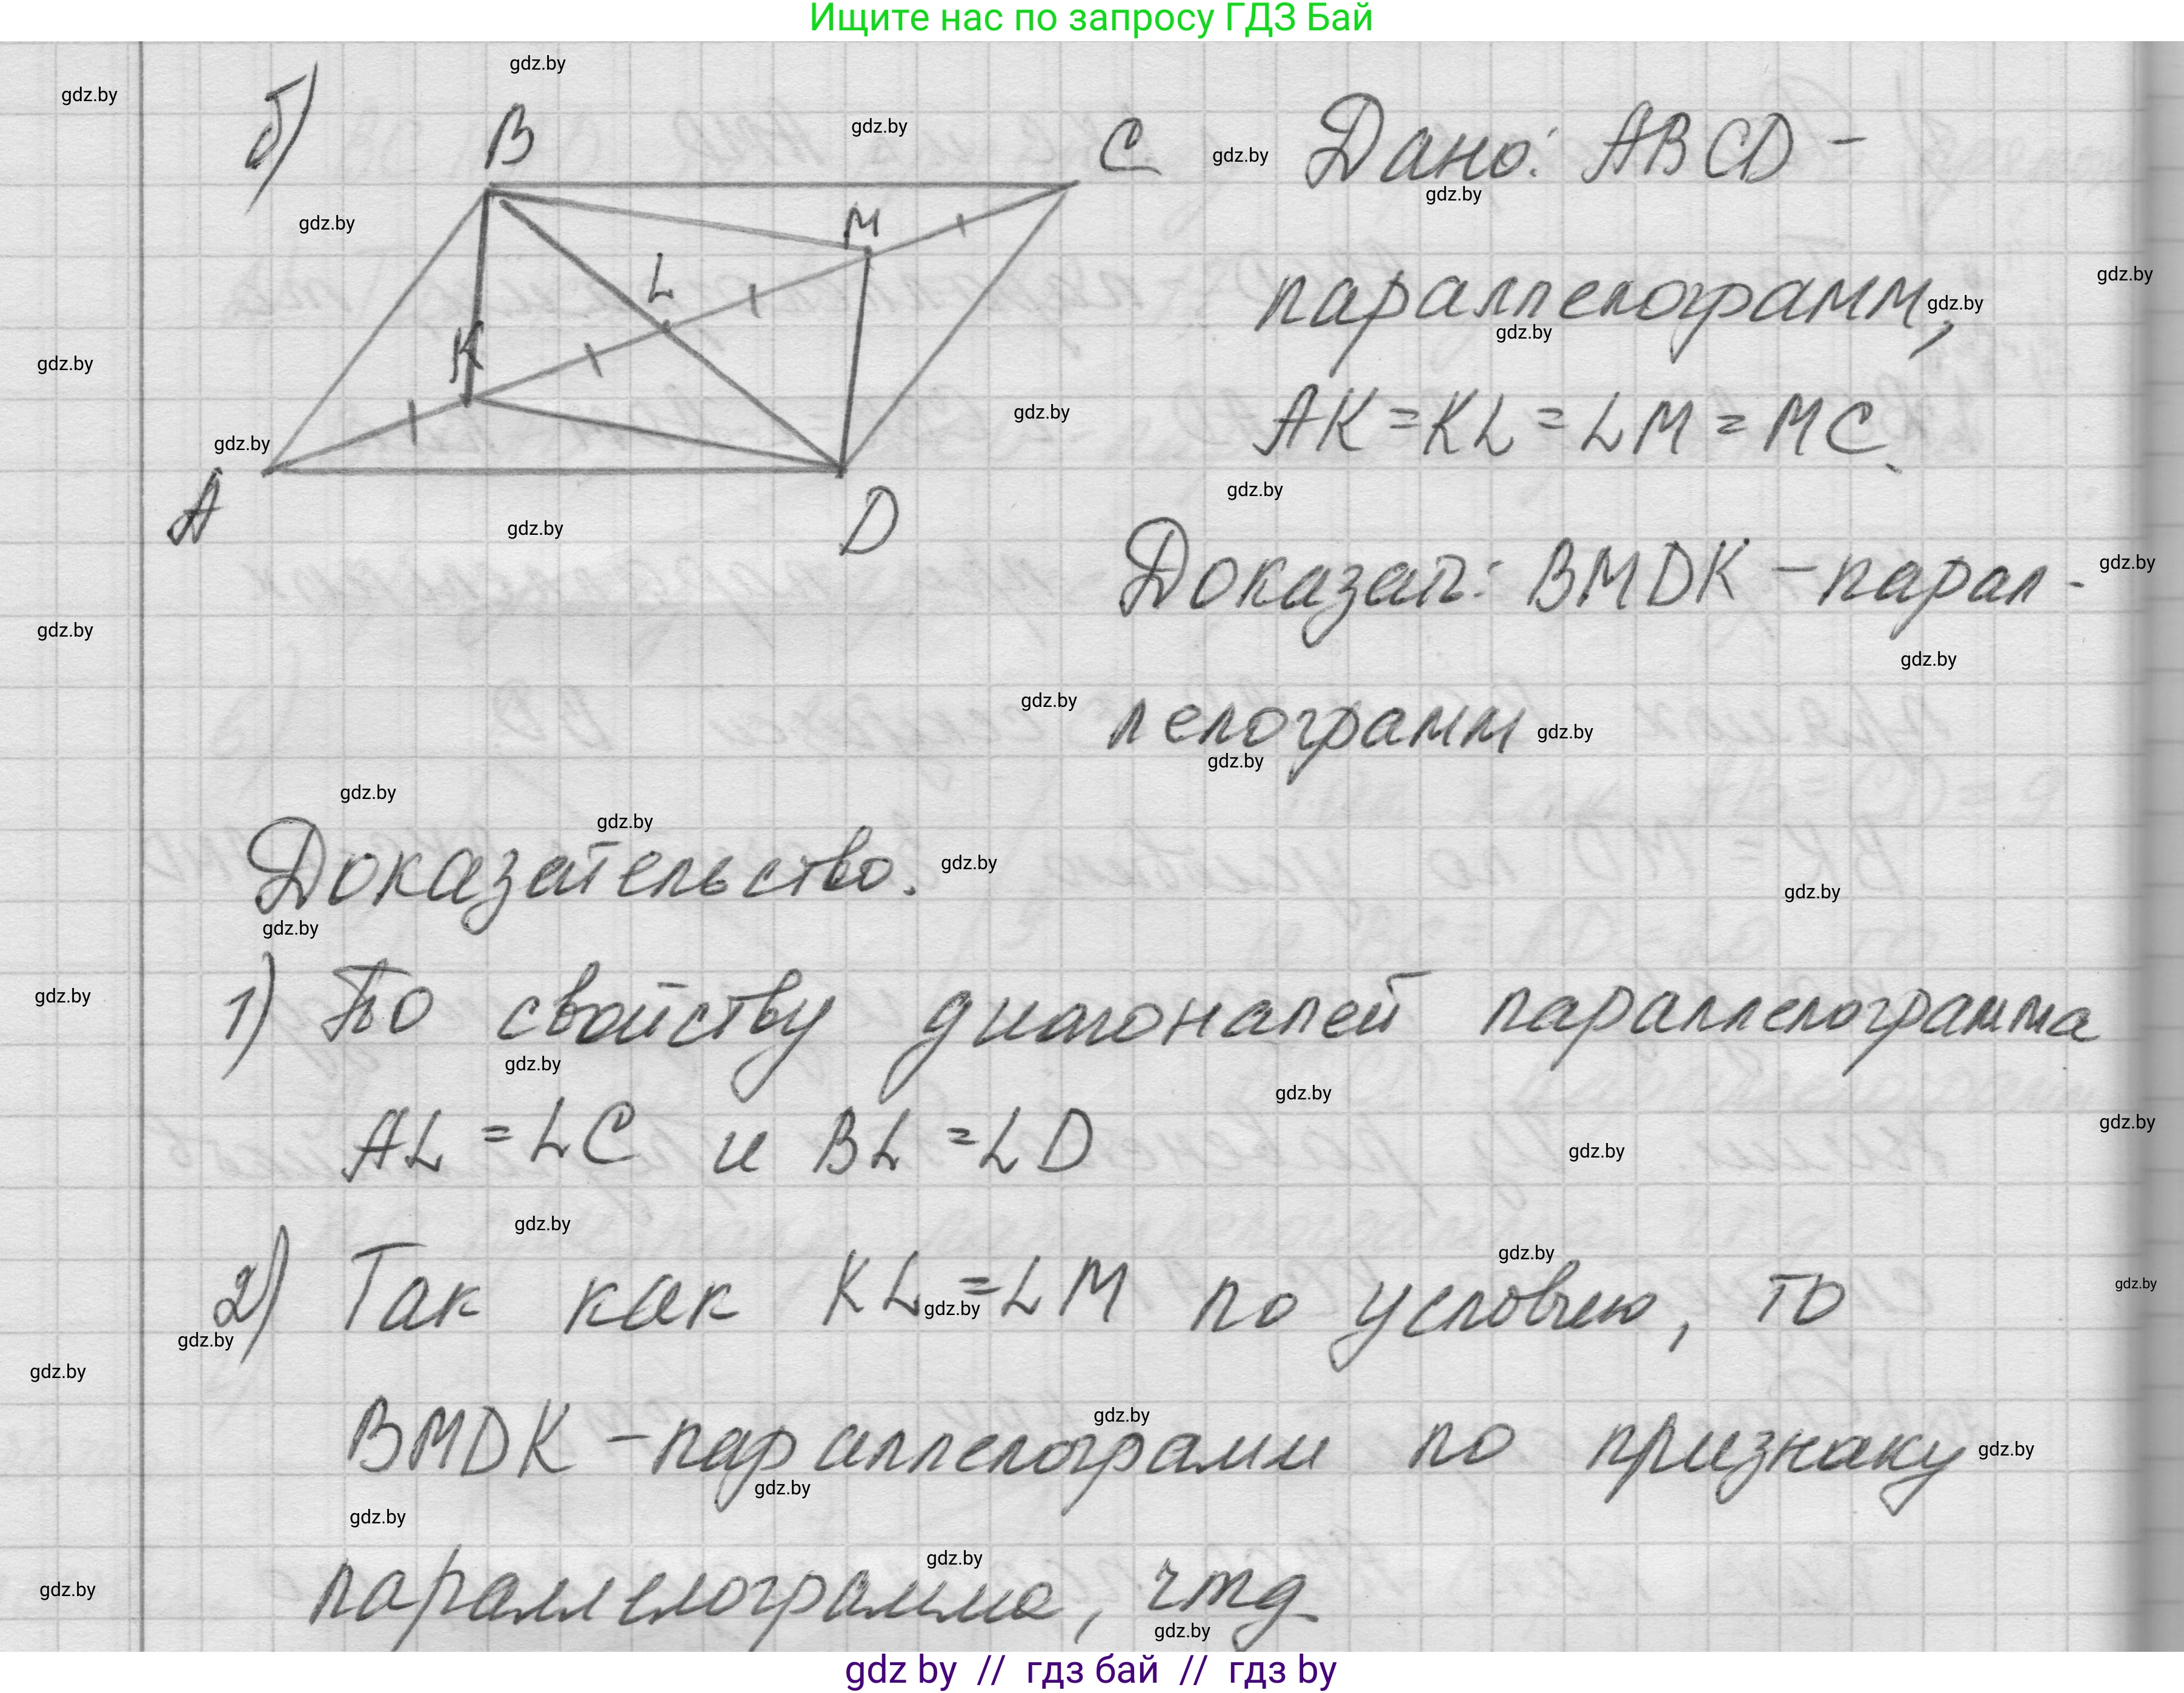 Ищите нас по запросу ГДЗ Бай
б)
B
C
M
L
K
A
D
Дано: ABCD –
параллелограмм,
AK = KL = LM = MC.
Доказать: BMDK – парал-
лелограмм
Доказательство.
1) По свойству диагоналей параллелограмма
AL = LC и BL = LD
2) Так как KL = LM по условию, то
BMDK – параллелограмм по признаку
параллелограмма, чтд
gdz by // гдз бай // гдз by
gdz.by